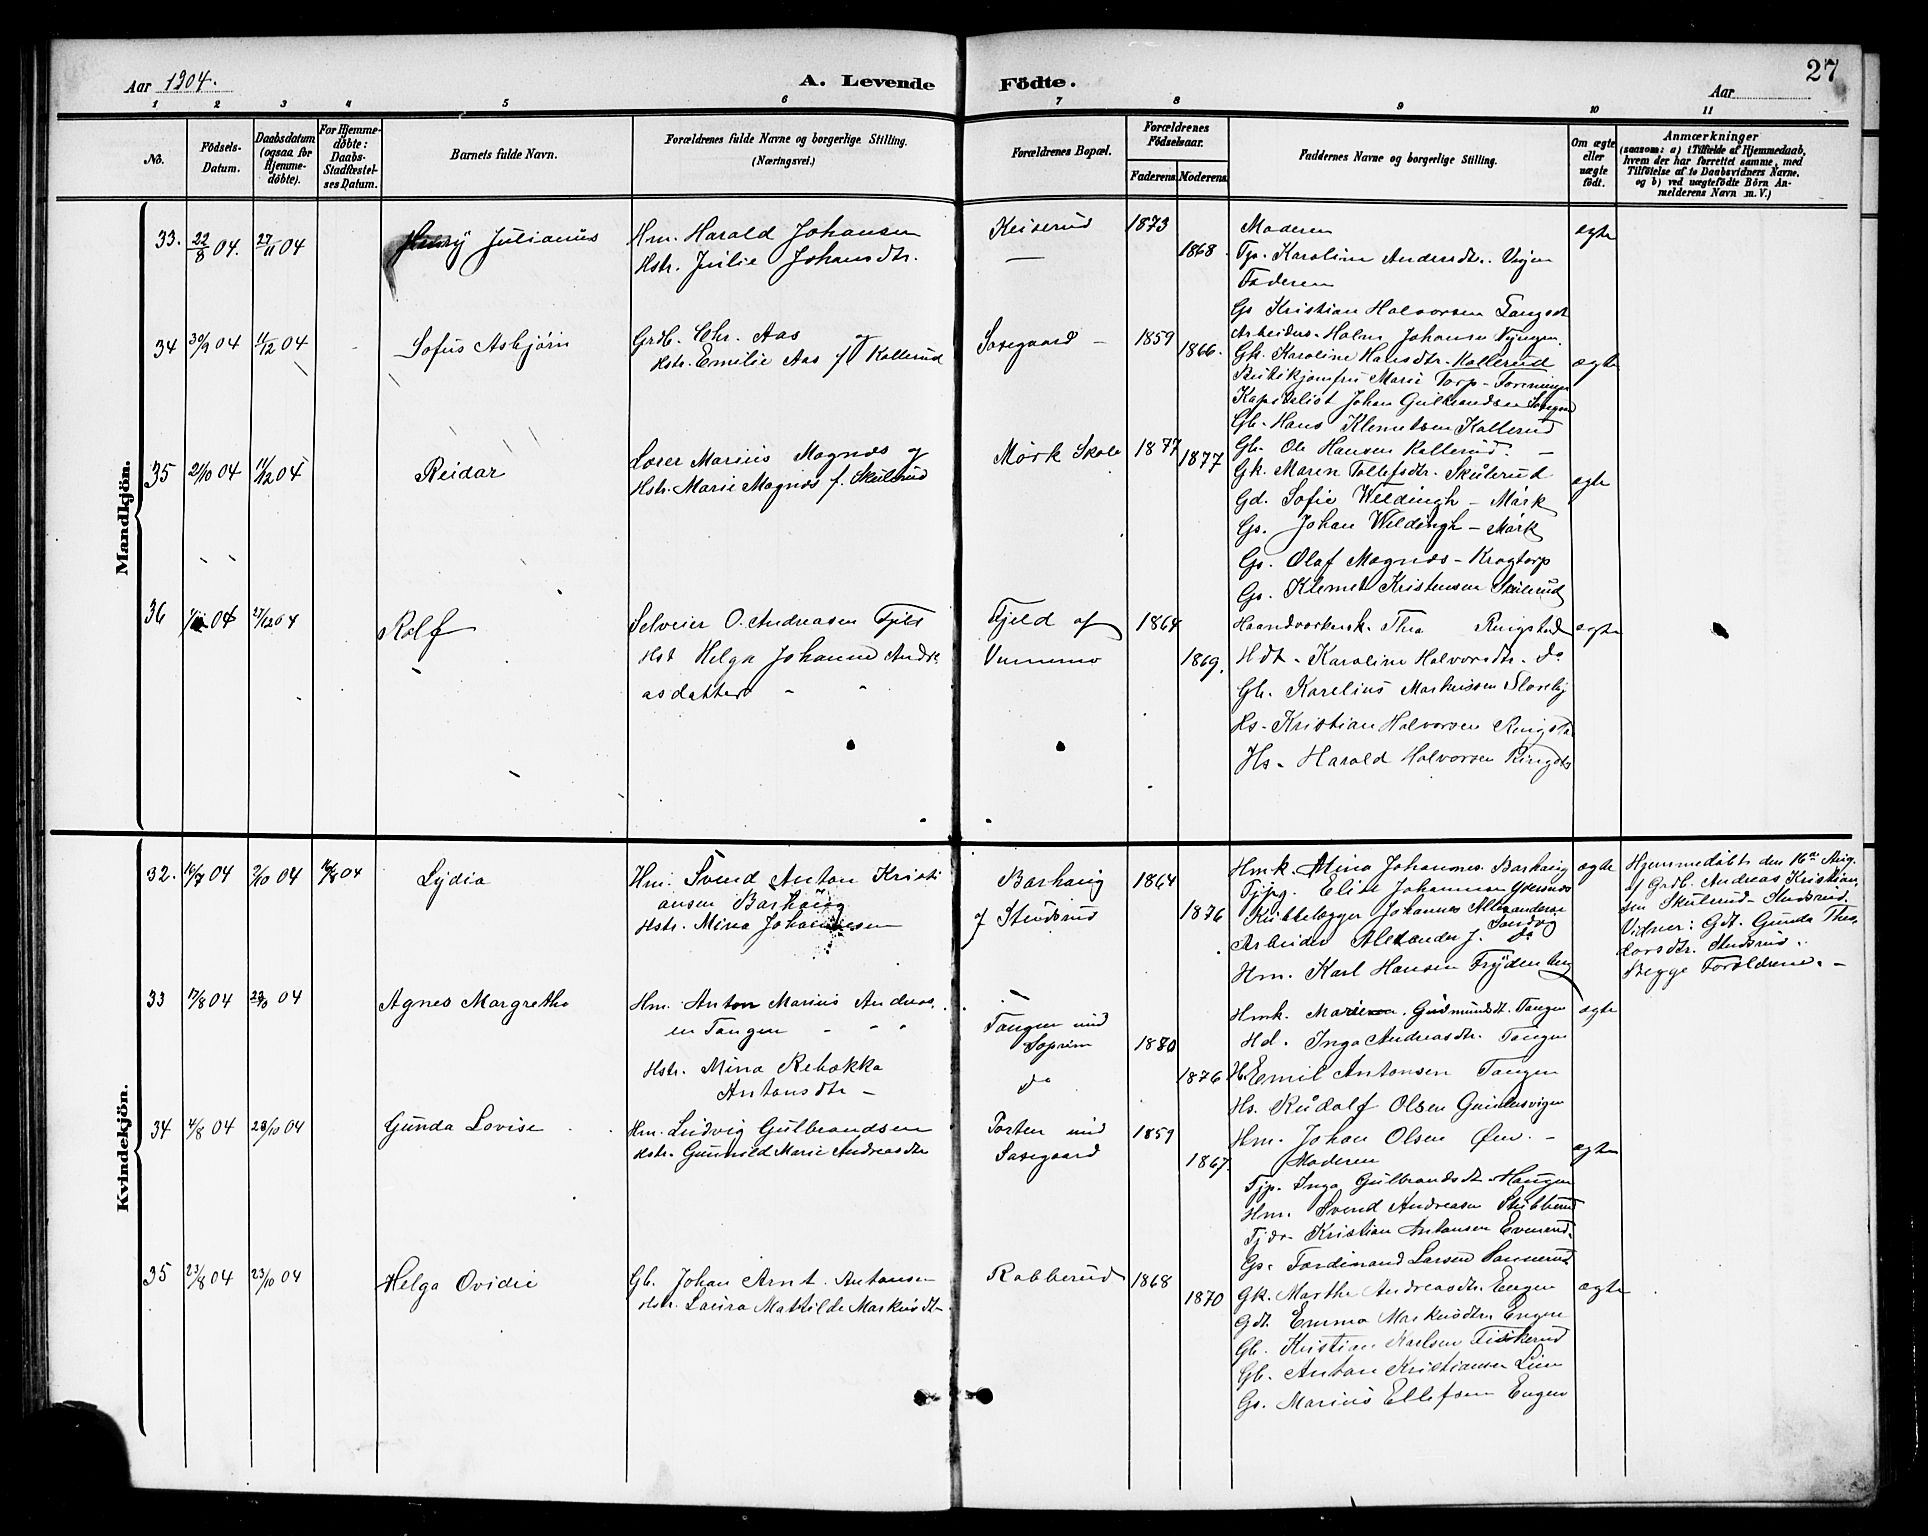 Aar 1904.
A. Levende Födte.
27
Aar
1 2 3 4 5 6 7 8 9 10 11
No.
Födsels-Datum.
Daabsdatum (ogsaa for Hjemme-döbte).
For Hjemme-döbte: Daabs-Stadfæstel-ses Datum.
Barnets fulde Navn.
Forældrenes fulde Navne og borgerlige Stilling.
(Næringsvei.)
Forældrenes Bopæl.
Forældrenes Födselsaar.
Faderens
Moderens
Faddernes Navne og borgerlige Stilling.
Om ægte eller uægte födt.
Anmærkninger
(saasom: a) i Tilfælde af Hjemmedaab,
hvem der har forrettet samme, med
Tilföielse af to Daabsvidners Navne,
og b) ved uægtefödte Börn An-
melderens Navn m. V.)
Mandkjön.
33. 22/8 04. 27/11 04 Henry Julianus
Hm. Harald Johansen
Hstr. Julie Johansdtr.
Keiserud
—
1873
1868
Moderen
Tp. Karoline Andersdtr.
Faderen
Gs Kristian Halvorsen
Arbeider
ægte
34 30/9 04 11/12 04 Sofus Asbjørn
Grdb. Chr. Aas og
Hstr. Emilie Aas f. Kallerud
Sasegaard —
1859
1866.
Gk. Karoline Hansdtr. Kallerud
Butikjomfru Marie Torp
Kapitalist Johan Gulbrandsen
Gb. Hans Klemetsen Kallerud
ægte
35 2/10 04 11/12 04 Reidar
Lærer Marius Magnæs og
Hstr. Marie Magnæs f. Skulerud
Mørk Skole
1877
1877
Gb. Ole Hansen Kallerud. —
Gk. Maren Tollefsdtr. Skulerud
Gd. Sofie Weldingh — Mørk
Gs. Johan Weldingh — Mørk
Gs. Olaf Magnæs — Krogtorp
Gs. Klemet Kristensen Skulerud
ægte
36 04 27/12 04 Rolf
Selveier O. Andreasen Fjeld
Hst Helga Johanne Andre
asdatter
Fjeld af
1864
1869.
Haandværkersk. Thea Ringstad
Hdt. Karoline Halvorsdtr. do
Gb. Karelius Markussen
Hs. Kristian Halvorsen
Hs. Harald Halvorsen
ægte
Kvindekjön.
32. 16/7 04 2/10 04 16/8 04 Lydia
Hm. Svend Anton Kristi
ansen Barhaug
Hstr. Mina Johannesen
Barhaug
af Studsrud
1864
1876
Hmk. Mina Johannes. Barhaug
Tjpg. Eline Johannesen
Kubbelægger Johannes Alexandersen
Arbeider Alexander J. do
Hm. Karl Hansen Frydenberg
ægte
Hjemmedøbt den 16de Aug.
af Grdb. Andreas Kristian
sen Skulerud — Studsrud.
Vidner: Gdt. Gunda Theo
dorsdtr. Studsrud.
Begge Forældrene. —
33 17/8 04 23/10 04 Agnes Margrethe
Hm. Anton Marius Andreas
en Tangen
Hstr. Mina Rebekka
Antonsdtr —
Tangen
do
1880
1876
Hmk. Gudmundsdt. Tangen
Hd. Inga Andreasdtr. Tangen
H. Emil Antonsen Tangen
Hs. Rudolf Olsen
ægte
34 4/8 04 23/10 04 Gunda Lovise
Hm. Ludvig Gulbrandsen
Hstr. Gunhild Marie Andreasdtr
Porten
Sasegaard
1859
1867
Hm. Johan Olsen Øen. —
Moderen
Tjp. Inga Gulbrandsdt. Haugen
Hm. Svend Andreasen Stubberud
Tjdr Kristian Antonsen
Gs. Ferdinand Larsen
ægte
35 23/8 04 23/10 04 Helga Ovidie
Gb. Johan Arnt. Antonsen
Hstr. Laura Mathilde Markusdt—
Rabberud
1868
1870
Gk. Marthe Andreasdtr. Engen
Gdt. Emma Markusdtr. Engen
Gb. Kristian Karlsen Fiskerud
Gb. Anton Kristiansen Lien
Gs. Marius Ellefsen Engen
ægte